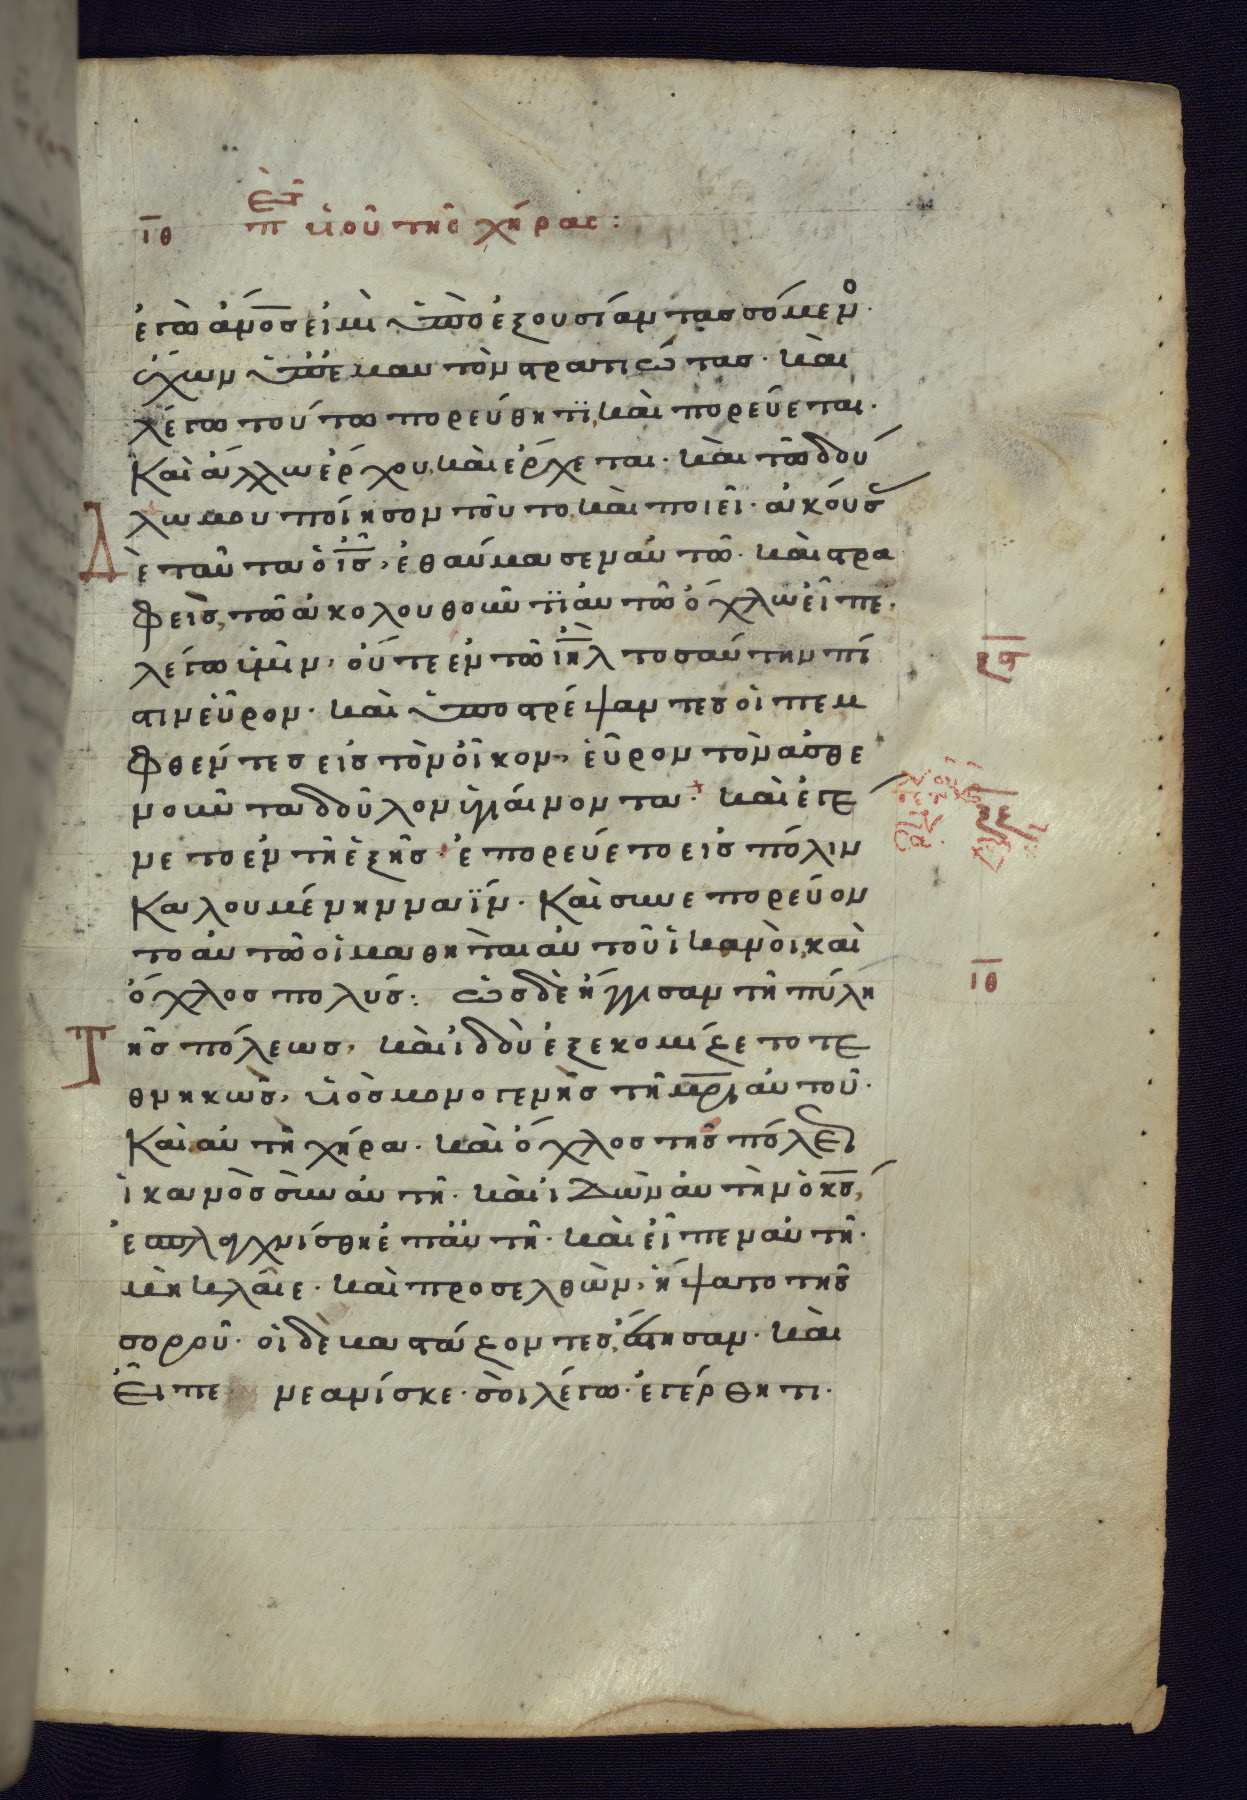 ιθ π(ερὶ) υἱοῦ τῆς χήρας:
ἐγὼ ἄνος εἰμὶ ὑπὸ ἐξουσίαν τασσόμενο
ἔχων ὑπ' ἐμαυτὸν στρατιώτας· καὶ
λέγω τούτω πορεύθητϊ, καὶ πορεύεται·
Καὶ ἄλλω ἔρχου, καὶ ἔρχεται· καὶ τῶ δού
λω μου ποίησον τοῦτο, καὶ ποιεῖ· ἀκούσ
Δὲ ταῦτα ὁ ις, ἐθαύμασεν αὐτῶ· καὶ στρα
φεὶς, τῶ ἀκολουθοῦντϊ αὐτῶ ὄχλω εἶπε·
λέγω ὑμῖν, οὔτε ἐν τῶ ιηλ τοσαύτην πί
στιν εὗρον· καὶ ὑποστρέψαντες οἱ πεμ
φθέντες εἰς τὸν οἶκον, εὗρον τὸν ἀσθε
νοῦντα δοῦλον ὑγιαίνοντα· καὶ ἐγέ
νετο ἐν τῆ ἑξῆς· ἐπορεύετο εἰς πόλιν
Καλουμένην ναϊν· Καὶ συνεπορεύον
το αὐτῶ οἱ μαθηταὶ αὐτοῦ ἱκανὸι, καὶ
ὄχλος πολύς: ὡς δὲ ἤγγισαν τῆ πύλη
Τῆς πόλεως, καὶ ἰδοὺ ἐξεκομίζετο τε
θνηκὼς, υἱὸς μονογενὴς τῆ μρι αὐτοῦ·
Καὶ αὐτῆ χήρα· καὶ ὄχλος τῆς πόλεω
ἱκανὸς σὺν αὐτῆ· καὶ ἰδὼν αὐτὴν ὁ κς,
ἐσπλαγχνίσθη ἐπ' αὐτῆ· καὶ εἶπεν αὐτῆ·
μὴ κλαῖε· καὶ προσελθὼν, ἥψατο τῆς
σοροῦ· οἱ δὲ βαστάζοντες, ἔστησαν· καὶ
Εἶπε νεανίσκε· σοὶ λέγω· ἐγέρθητι·
ιθ